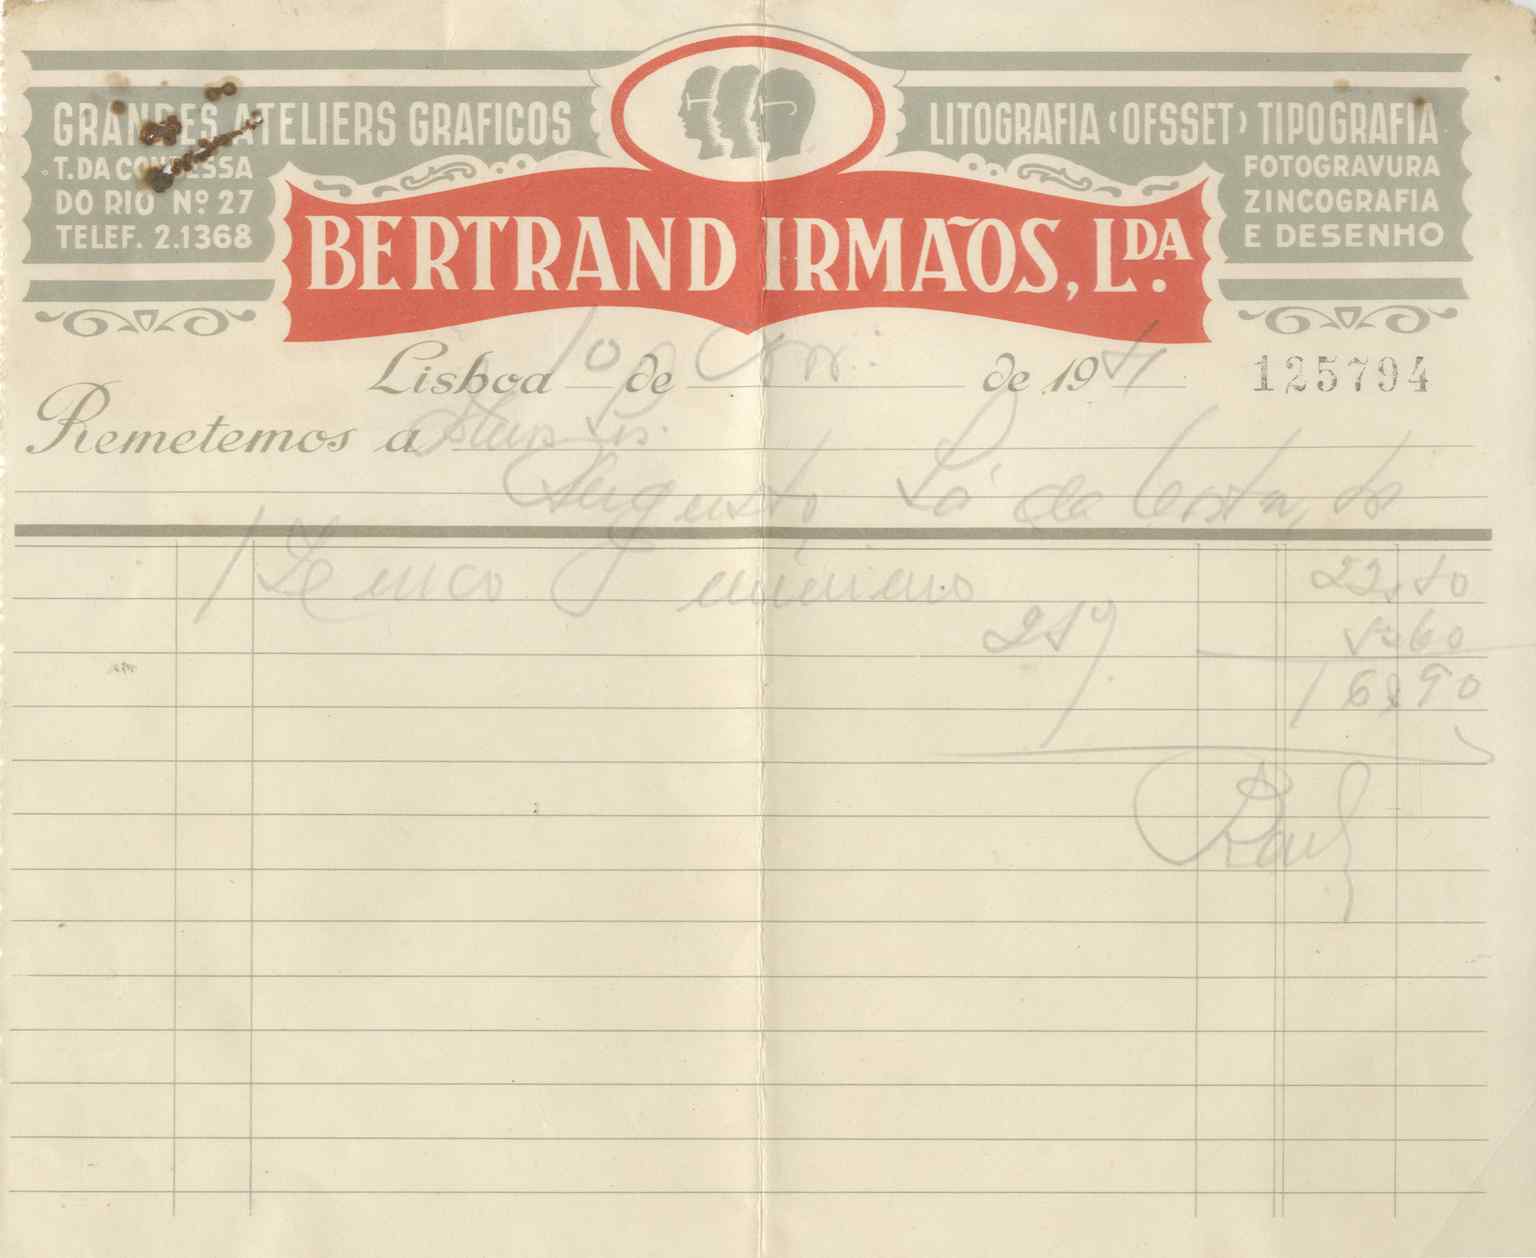 GRANDES ATELIERS GRAFICOS
T. DA CONDESSA
DO RIO Nº 27
TELEF. 2.1368
LITOGRAFIA (OFSSET) TIPOGRAFIA
FOTOGRAVURA
ZINCOGRAFIA
E DESENHO
BERTRAND IRMÃOS, LDA.
Lisboa 10 de de 1941
125794
Remetemos a
Augusto Sá da Costa,
1 Zinco minimo 22,50
25% 5,60
16,90
Raul